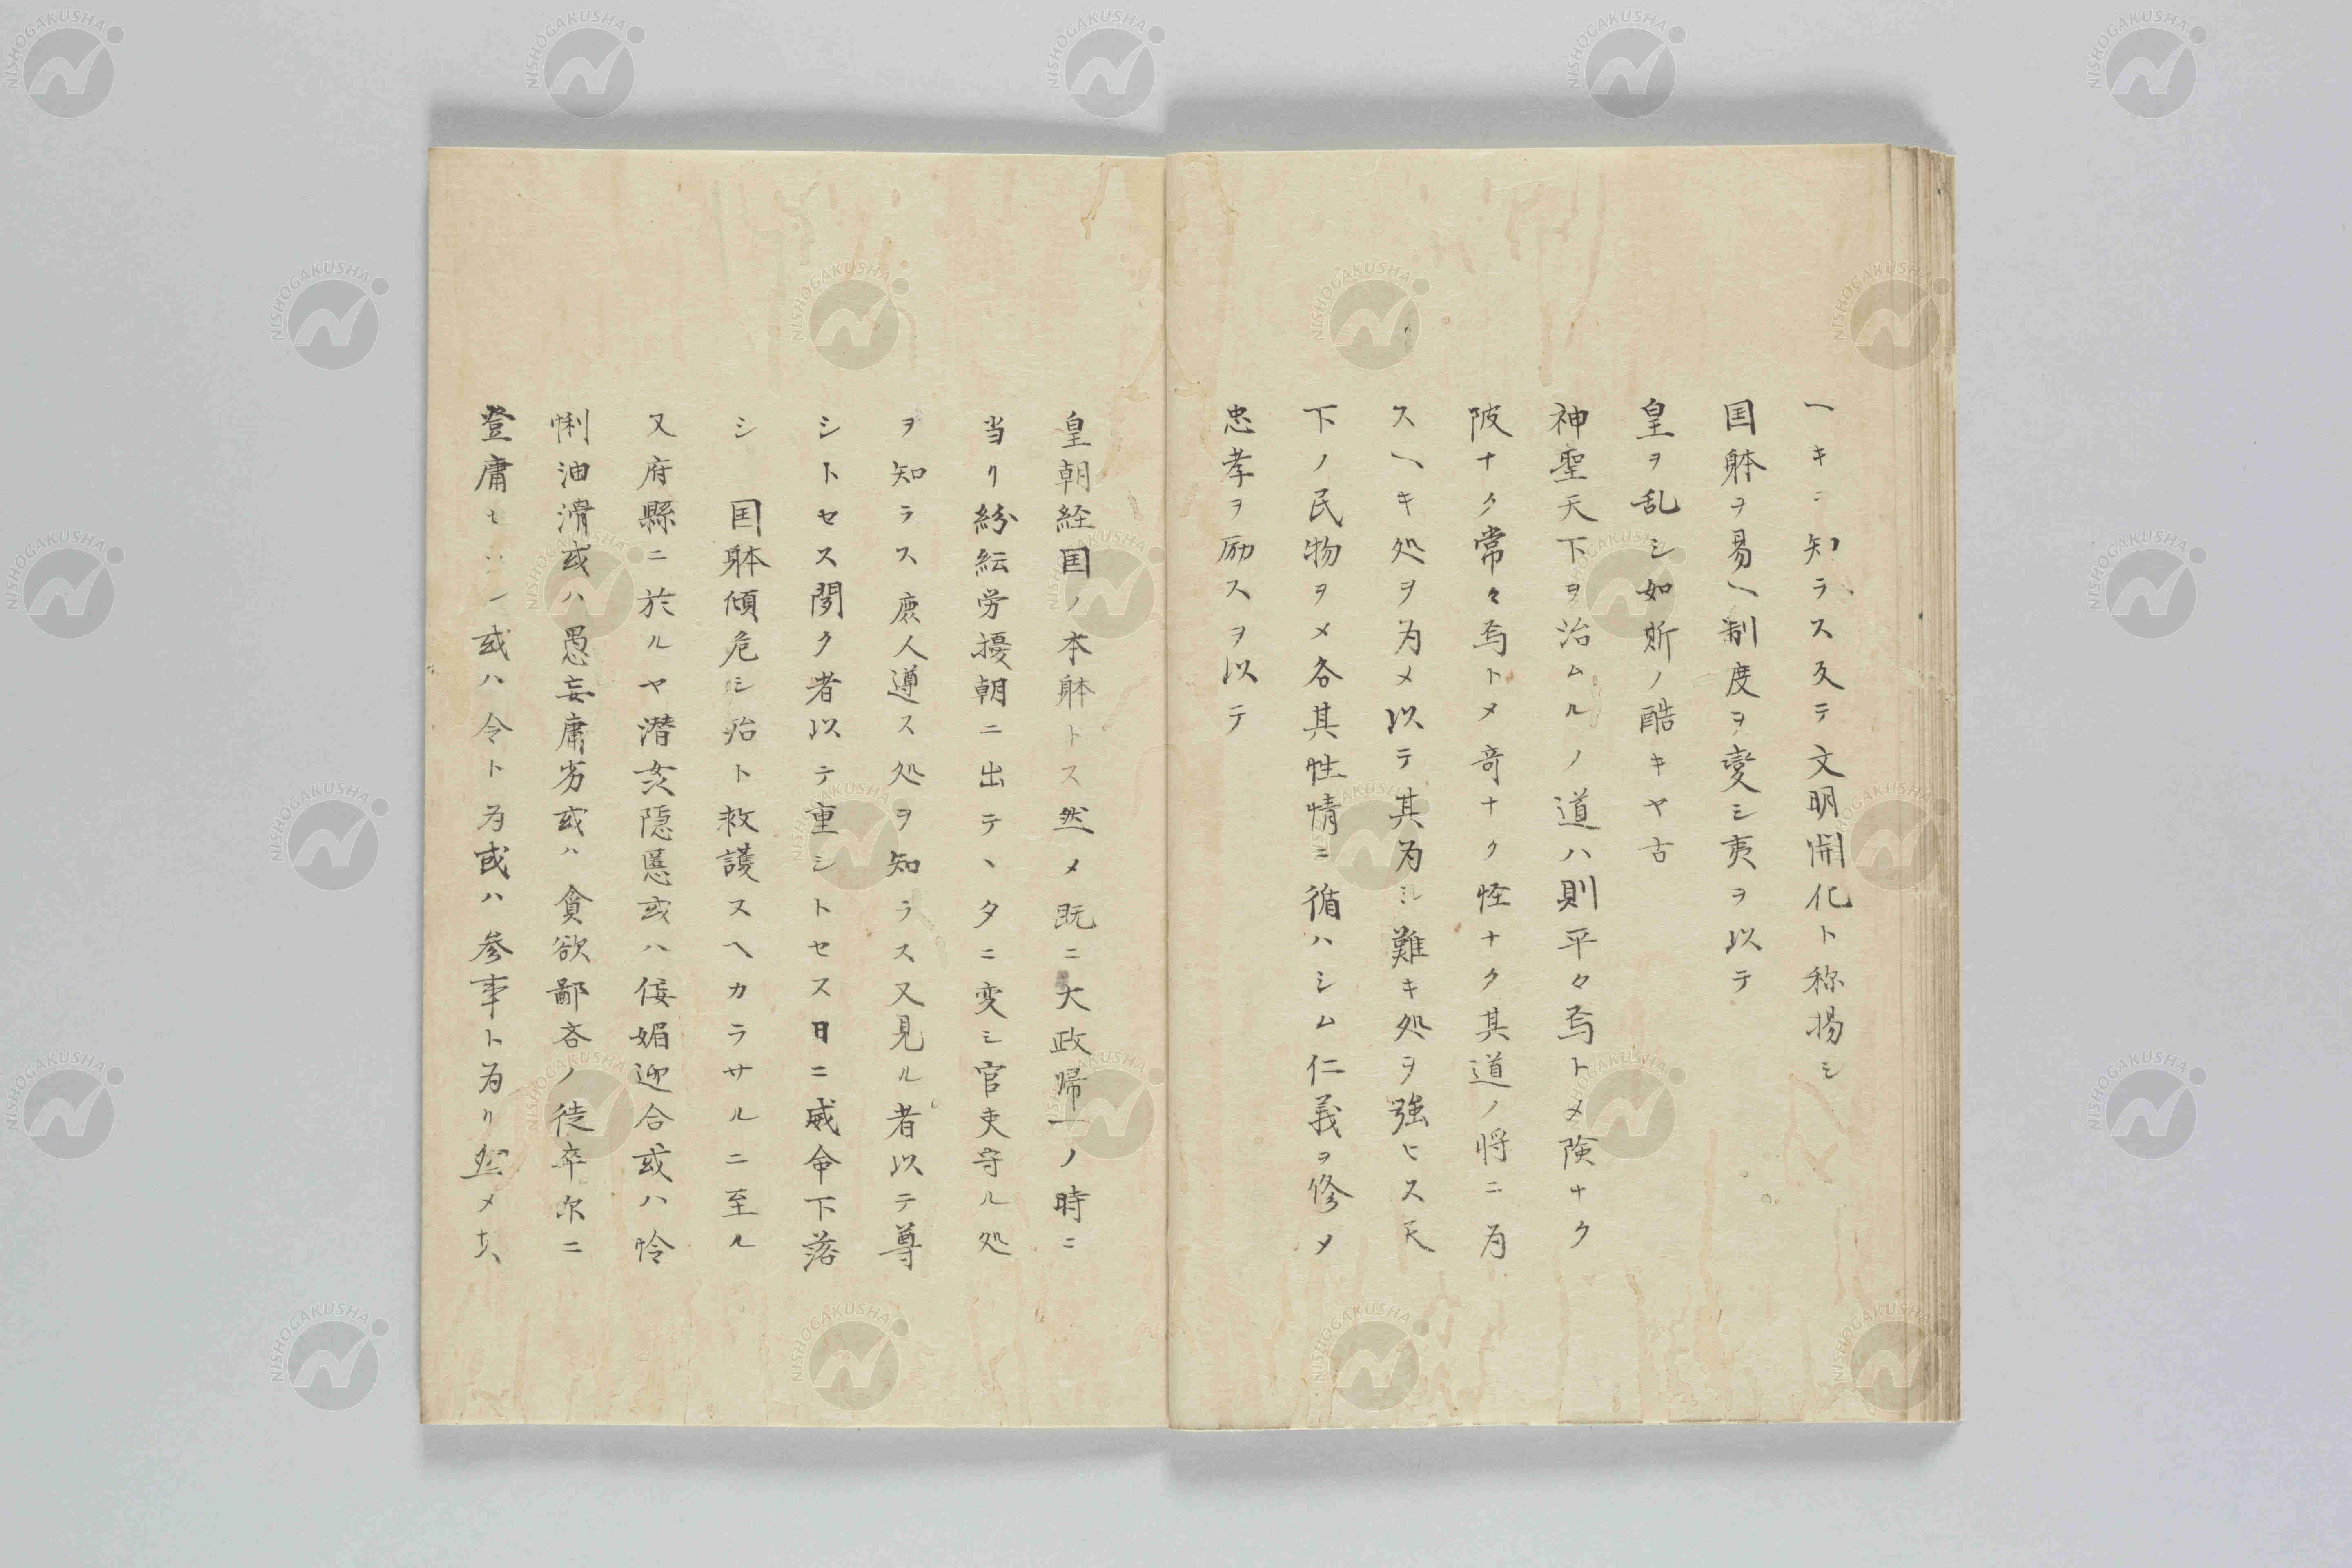 一キニ知ラス反テ文明開化ト称揚シ
国躰ヲ易ヘ制度ヲ変シ夷ヲ以テ
皇ヲ乱シ如斯ノ酷キヤ古
神聖天下ヲ治ムルノ道ハ則平々焉トメ険ナク
陂ナク常々焉トメ奇ナク怪ナク其道ノ将ニ為
スヘキ処ヲ為メ以テ其為シ難キ処ヲ強ヒス天
下ノ民物ヲメ各其性情ニ循ハシム仁義ヲ修メ
忠孝ヲ励スヲ以テ
皇朝経国ノ本躰トス然メ既ニ大政帰一ノ時ニ
当リ紛紜労擾朝ニ出テヽタニ変シ官吏守ル処
ヲ知ラス庶人遵ス処ヲ知ラス又見ル者以テ尊
シトセス聞ク者以テ重シトセス日ニ威命下落
シ 国躰傾危シ殆ト救護スヘカラサルニ至ル
又府縣ニ於ルヤ潜姦隠慝或ハ佞媚迎合或ハ怜
悧油滑或ハ愚妄庸劣或ハ貪欲鄙吝ノ徒卒尓ニ
登庸セ 或ハ令ト為或ハ参事ト為リ然メ其
NISHOGAKUSHA